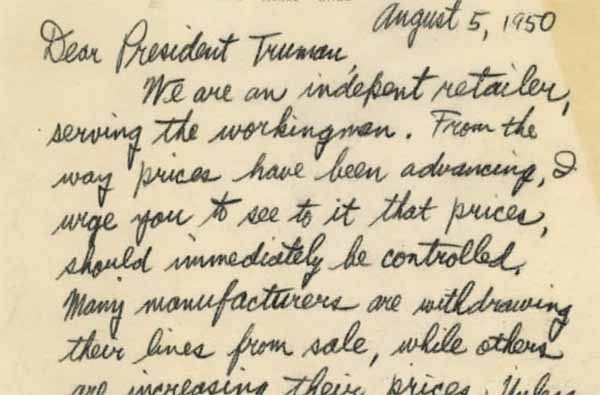 August 5, 1950
Dear President Truman,
We are an indepent retailer,
serving the workingman. From the
way prices have been advancing, I
urge you to see to it that prices,
should immediately be controlled.
Many manufacturers are withdrawing
their lines from sale, while others
are increasing their prices. Unless